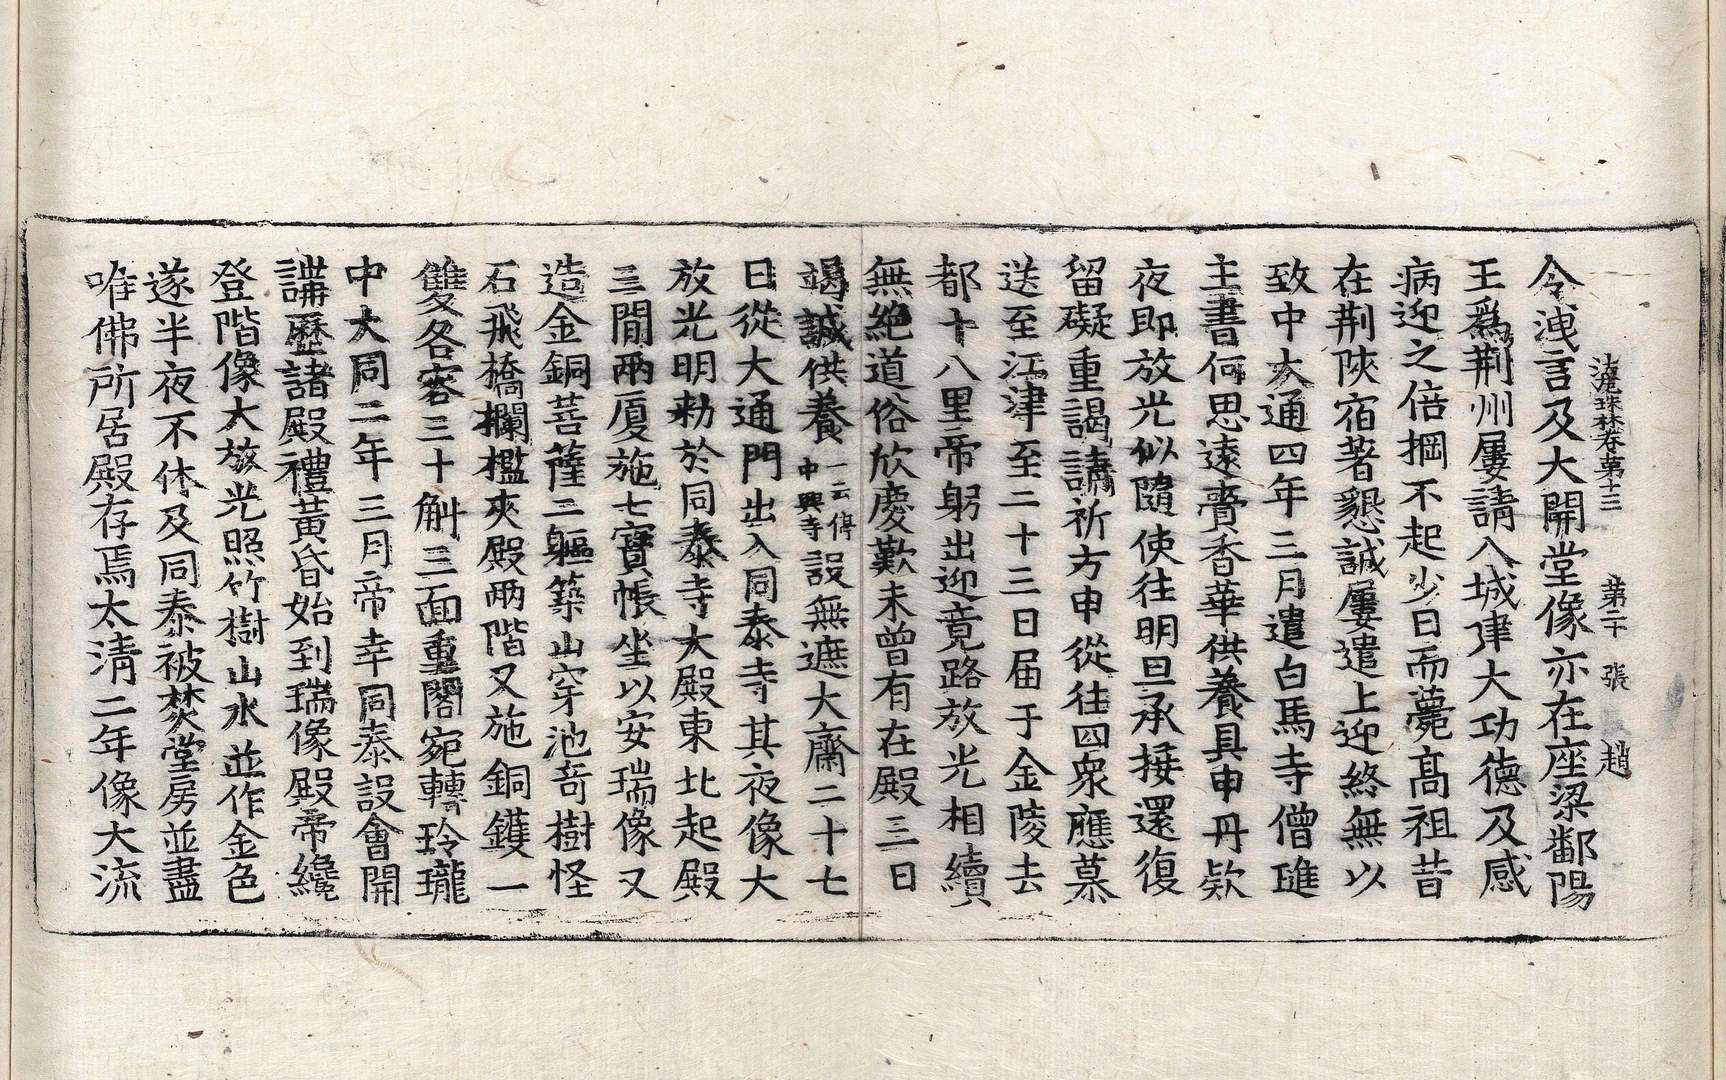 法苑珠林卷第十三 第二十 張 趙
令洩言及大開堂像亦在座梁鄱陽
王爲荆州屢請入城建大功德及感
病迎之倍掆不起少日而薨髙祖昔
在荆陜宿著懇誠屢遣上迎終無以
致中大通四年三月遣白馬寺僧璡
主書何思遠賫香華供養具申丹欵
夜即放光似隨使往明旦承接還復
留礙重謁請祈方申從往四衆應慕
送至江津至二十三日届于金陵去
都十八里帝躬出迎竟路放光相續
無絶道俗欣慶歎未曾有在殿三日
竭誠供養一云停中興寺設無遮大齋二十七
日從大通門出入同泰寺其夜像大
放光明勑於同泰寺大殿東北起殿
三間兩厦施七寳帳坐以安瑞像又
造金銅菩薩二軀築山穿池竒樹怪
石飛橋欄檻夾殿兩階又施銅鑊一
雙各容三十斛三面重閣宛轉玲瓏
中大同二年三月帝幸同泰設會開
講歴諸殿禮黄昏始到瑞像殿帝纔
登階像大放光照竹樹山水並作金色
遂半夜不休及同泰被焚堂房並盡
唯佛所居殿存焉太清二年像大流